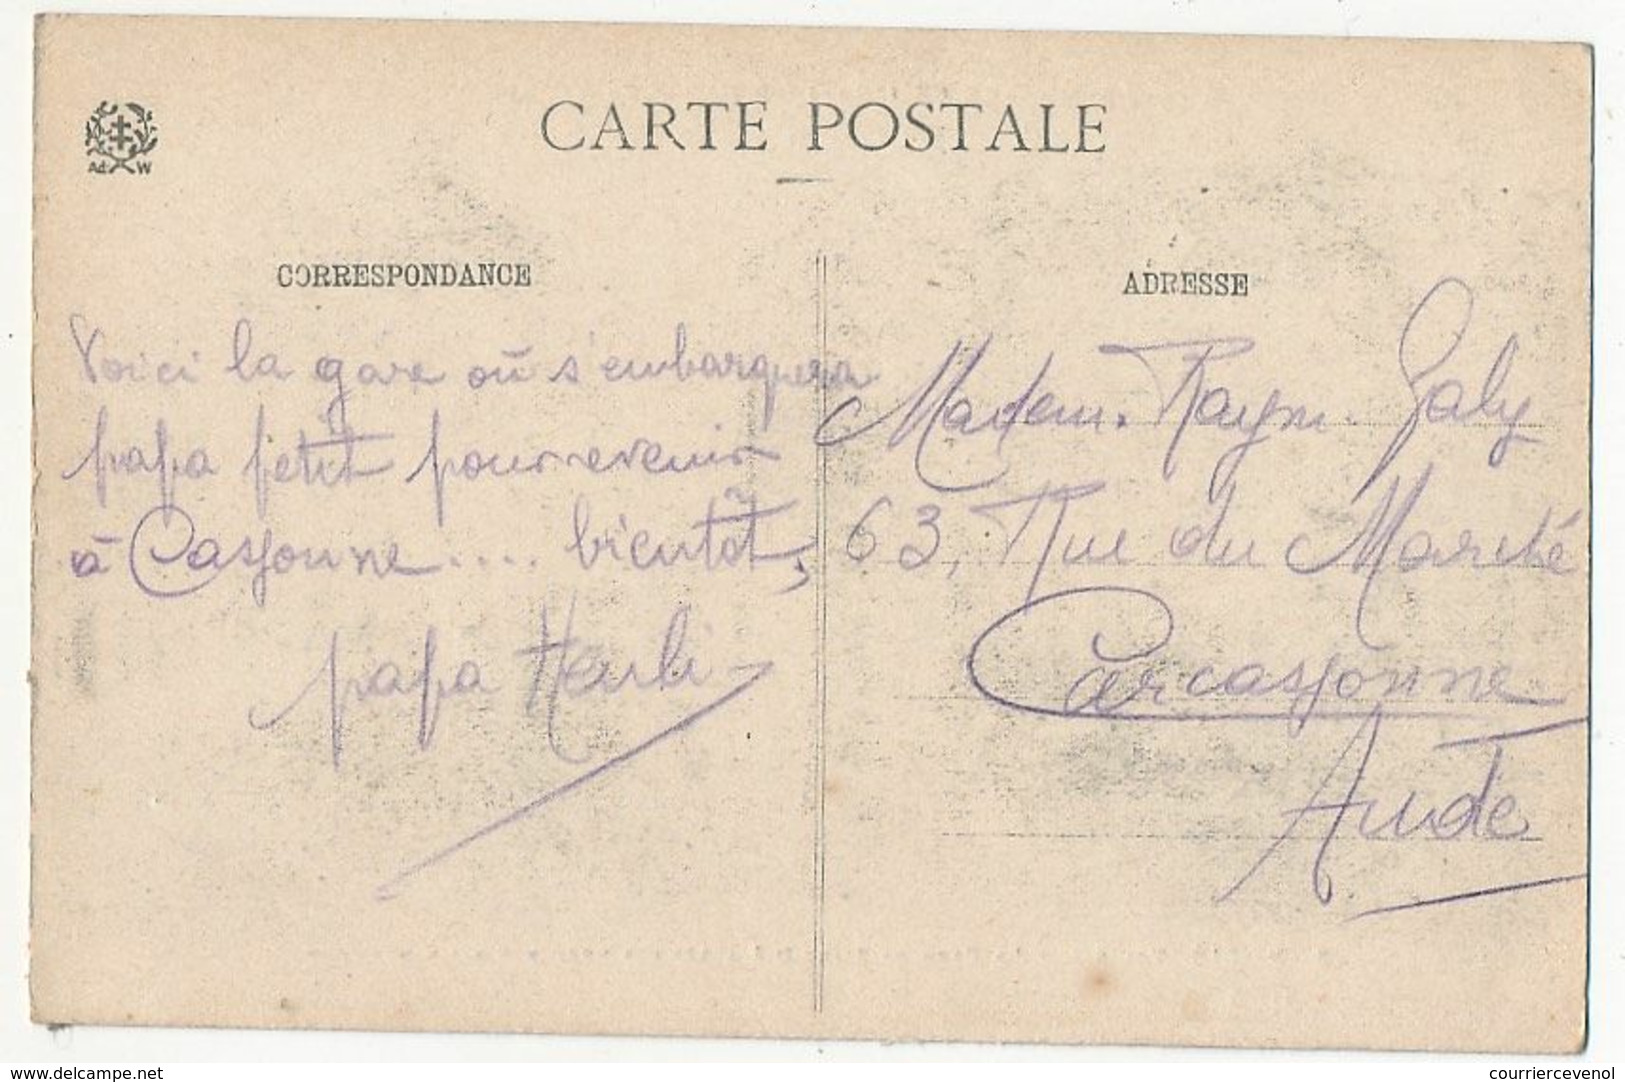 CARTE POSTALE
Ad W
CORRESPONDANCE
Voici la gare où s'embarquera
papa petit pour revenir
à Cassonne .... bientôt,
papa
ADRESSE
Madam. Raym. Galy
63, Rue du Marché
Carcassonne
Aude
delcampe.net
courriercevenol